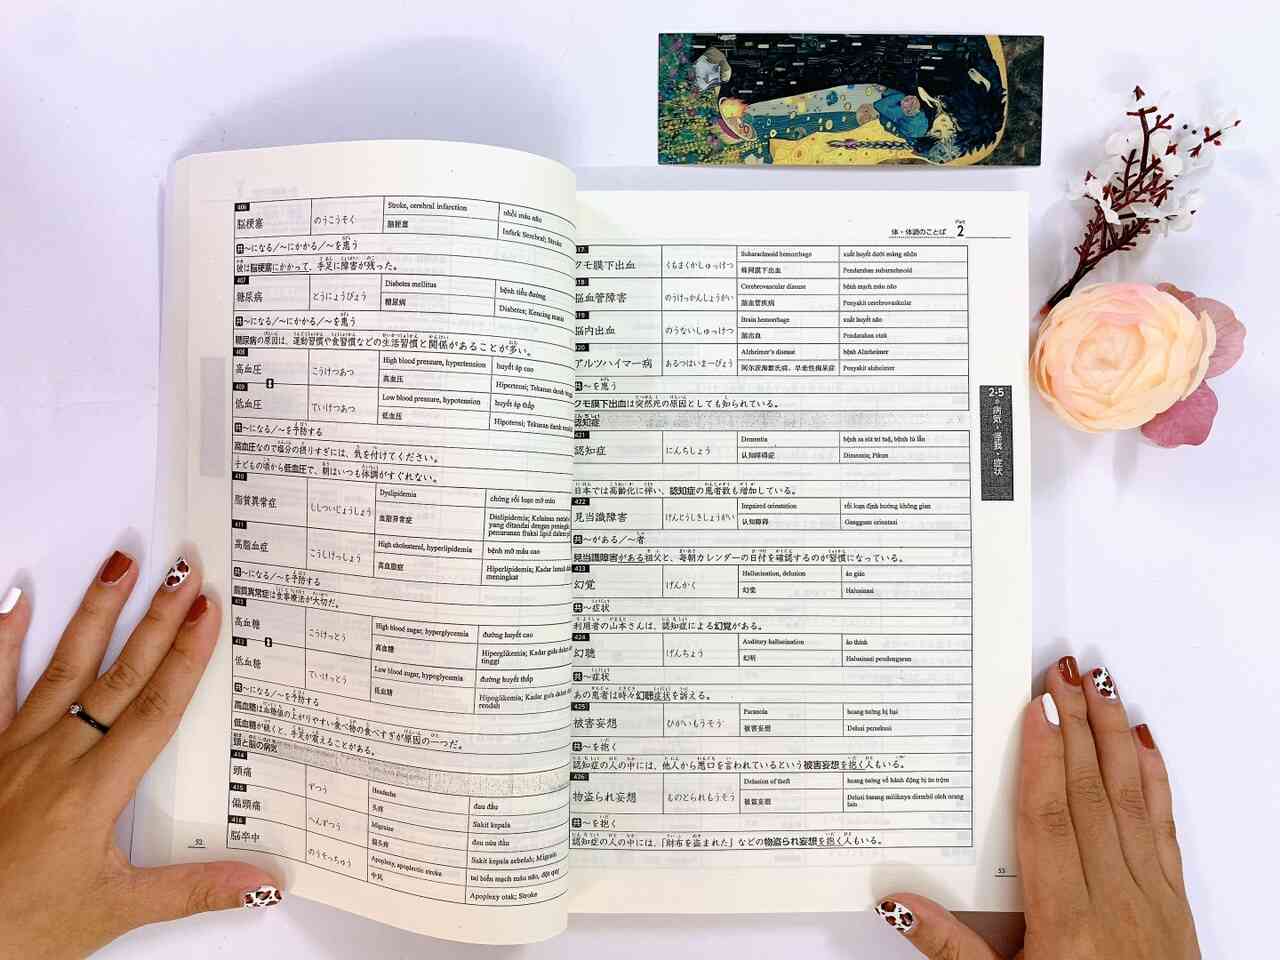 406
脳梗塞 のうこうそく Stroke, cerebral infarction nhồi máu não
脳梗塞 Infark Serebral; Stroke
共 ～になる／～にかかる／～を患う
彼は脳梗塞にかかって、手足に障害が残った。
407
糖尿病 とうにょうびょう Diabetes mellitus bệnh tiểu đường
糖尿病 Diabetes; Kencing manis
共 ～になる／～にかかる／～を患う
糖尿病の原因は、運動習慣や食習慣などの生活習慣と関係があることが多い。
408
高血圧 こうけつあつ High blood pressure, hypertension huyết áp cao
高血压 Hipertensi; Tekanan darah
409
低血圧 ていけつあつ Low blood pressure, hypotension huyết áp thấp
低血压 Hipotensi; Tekanan darah
共 ～になる／～を予防する
高血圧なので塩分の摂りすぎには、気を付けてください。
子どもの頃から低血圧で、朝はいつも体調がすぐれない。
410
脂質異常症 ししついじょうしょう Dyslipidemia chứng rối loạn mỡ máu
血脂异常症 Dislipidemia; Kelainan
yang ditandai dengan
penurunan fraksi lipid
411
高脂血症 こうしけっしょう High cholesterol, hyperlipidemia bệnh mỡ máu cao
高血脂症 Hiperlipidemia; Kadar lemak
meningkat
共 ～になる／～を予防する
脂質異常症は食事療法が大切だ。
412
高血糖 こうけっとう High blood sugar, hyperglycemia đường huyết cao
高血糖 Hiperglikemia; Kadar gula
tinggi
413
低血糖 ていけっとう Low blood sugar, hypoglycemia đường huyết thấp
低血糖 Hipoglikemia; Kadar gula
rendah
共 ～になる／～を予防する
高血糖は血糖値の上がりやすい食べ物の食べすぎが原因の一つだ。
低血糖が続くと、手足が震えることがある。
頭と脳の病気
414
頭痛 ずつう Headache đau đầu
头疼 Sakit kepala
415
偏頭痛 へんずつう Migraine đau nửa đầu
偏头疼 Sakit kepala sebelah; Migrain
416
脳卒中 のうそっちゅう Apoplexy, apoplectic stroke tai biến mạch máu não, đột quỵ
中风 Apoplexy otak; Stroke
52
体・体調のことば Part 2
17
クモ膜下出血 くもまくかしゅっけつ Subarachnoid hemorrhage xuất huyết dưới màng nhện
蛛网膜下出血 Pendarahan subarachnoid
18
脳血管障害 のうけっかんしょうがい Cerebrovascular disease bệnh mạch máu não
脑血管疾病 Penyakit cerebrovaskular
19
脳内出血 のうないしゅっけつ Brain hemorrhage xuất huyết não
脑出血 Pendarahan otak
20
アルツハイマー病 あるつはいまーびょう Alzheimer's disease bệnh Alzheimer
阿尔茨海默氏病、早老性痴呆症 Penyakit alzheimer
共 ～を患う
クモ膜下出血は突然死の原因としても知られている。
認知症
421
認知症 にんちしょう Dementia bệnh sa sút trí tuệ, bệnh lú lẫn
认知障碍症 Dimensia; Pikun
日本では高齢化に伴い、認知症の患者数も増加している。
422
見当識障害 けんとうしきしょうがい Impaired orientation rối loạn định hướng không gian
认知障碍 Gangguan orientasi
共 ～がある／～者
見当識障害がある祖父と、毎朝カレンダーの日付を確認するのが習慣になっている。
423
幻覚 げんかく Hallucination, delusion ảo giác
幻觉 Halusinasi
共 ～症状
利用者の山本さんは、認知症による幻覚がある。
424
幻聴 げんちょう Auditory hallucination ảo thính
幻听 Halusinasi pendengaran
共 ～症状
あの患者は時々幻聴症状を訴える。
425
被害妄想 ひがいもうそう Paranoia hoang tưởng bị hại
被害妄想 Delusi penekusi
共 ～を抱く
認知症の人の中には、他人から悪口を言われているという被害妄想を抱く人もいる。
426
物盗られ妄想 ものとられもうそう Delusion of theft hoang tưởng về hành động bị ăn trộm
被盗妄想 Delusi barang miliknya diambil oleh orang
lain
共 ～を抱く
認知症の人の中には、「財布を盗まれた」などの物盗られ妄想を抱く人もいる。
2-5
病気・怪我・症状
53